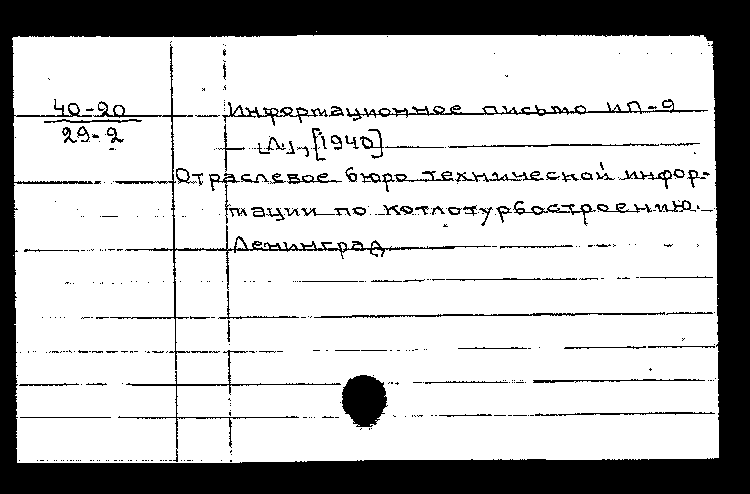 40-20
29-2
Информационное письмо ИП-9
— [Л.], [1940]
Отраслевое бюро технической инфор-
мации по котлотурбостроению.
Ленинград